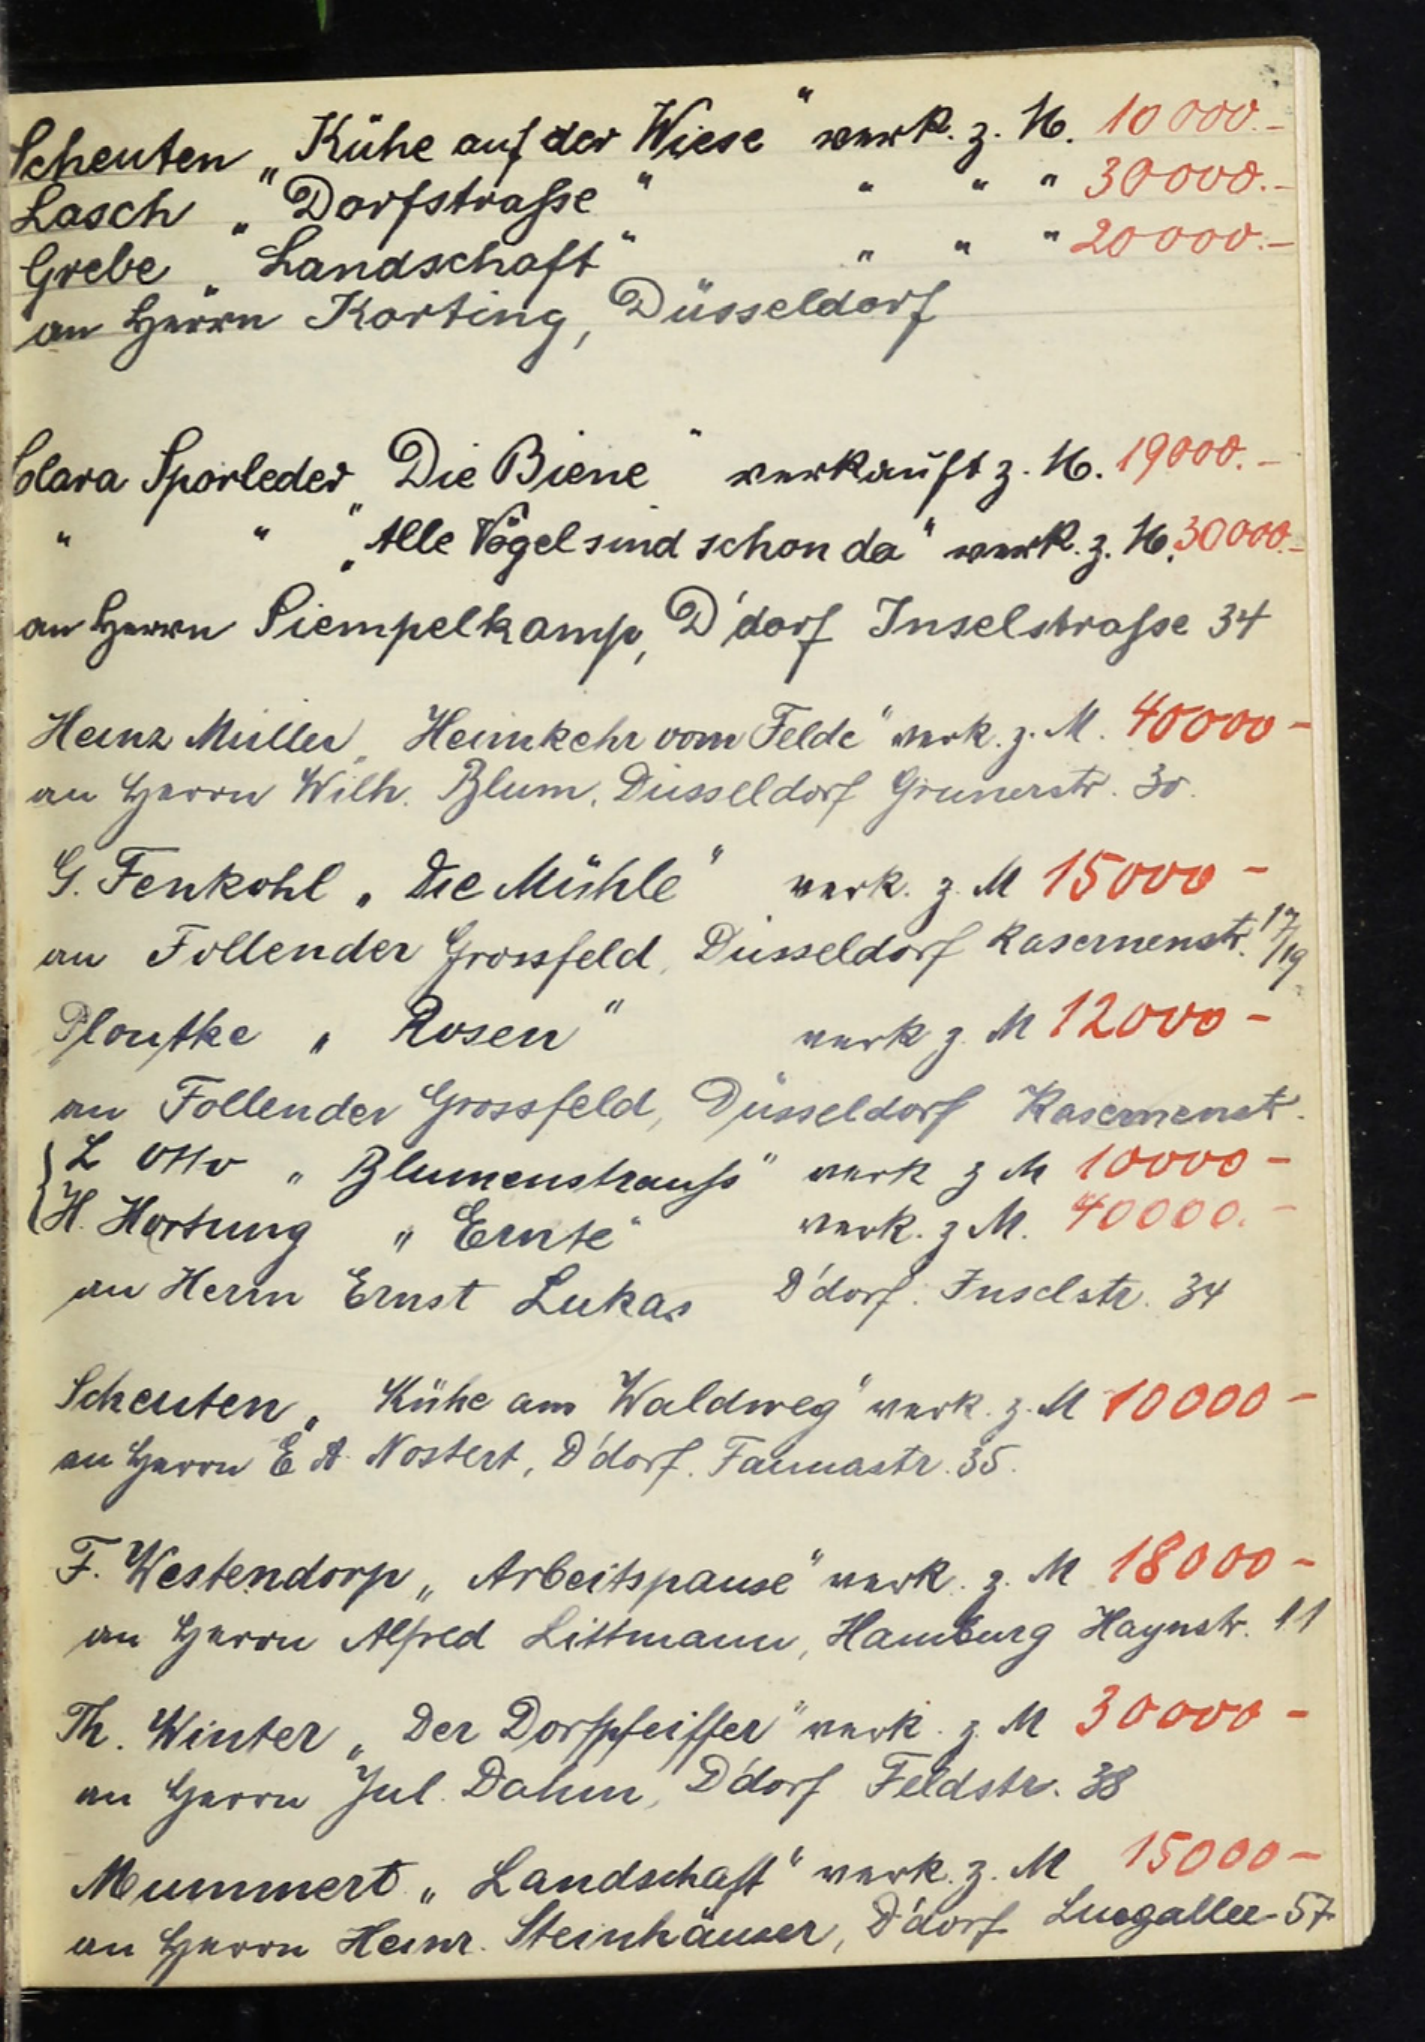 Scheuten „Kühe auf der Wiese" verk. z. M. 10000.-
Lasch „Dorfstraße" " " " 30000.-
Grebe „Landschaft" " " " 20000.-
an Herrn Korting, Düsseldorf
Clara Sporleder „Die Biene" verkauft z. M. 19000.-
" " „Alle Vögel sind schon da" verk. z. M. 30000.-
an Herrn Siempelkamp, D'dorf Inselstraße 34
Heinz Müller „Heimkehr vom Felde" verk. z. M. 40000-
an Herrn Wilh. Blum, Düsseldorf Grunerstr. 30.
G. Fenkohl „Die Mühle" verk. z. M 15000-
an Follender Grossfeld, Düsseldorf Kasernenstr. 17/19
Plontke „Rosen" verk z. M 12000-
an Follender Grossfeld, Düsseldorf Kasernenstr.
L Otto „Blumenstrauß" verk z M 10000-
H. Hartung „Ernte" verk. z M. 40000.-
an Herrn Ernst Lukas D'dorf. Inselstr. 34
Scheuten „Kühe am Waldweg" verk. z. M 10000-
an Herrn E A. Nostert, D'dorf. Faunastr. 35.
F. Westendorp „Arbeitspause" verk. z. M 18000-
an Herrn Alfred Littmann, Hamburg Haynstr. 11
Th. Winter „Der Dorfpfeiffer" verk. z. M 30000-
an Herrn Jul. Dahm, D'dorf Feldstr. 38
Mummert „Landschaft" verk. z. M 15000-
an Herrn Heinr. Steinhäuser, D'dorf Luegallee 57